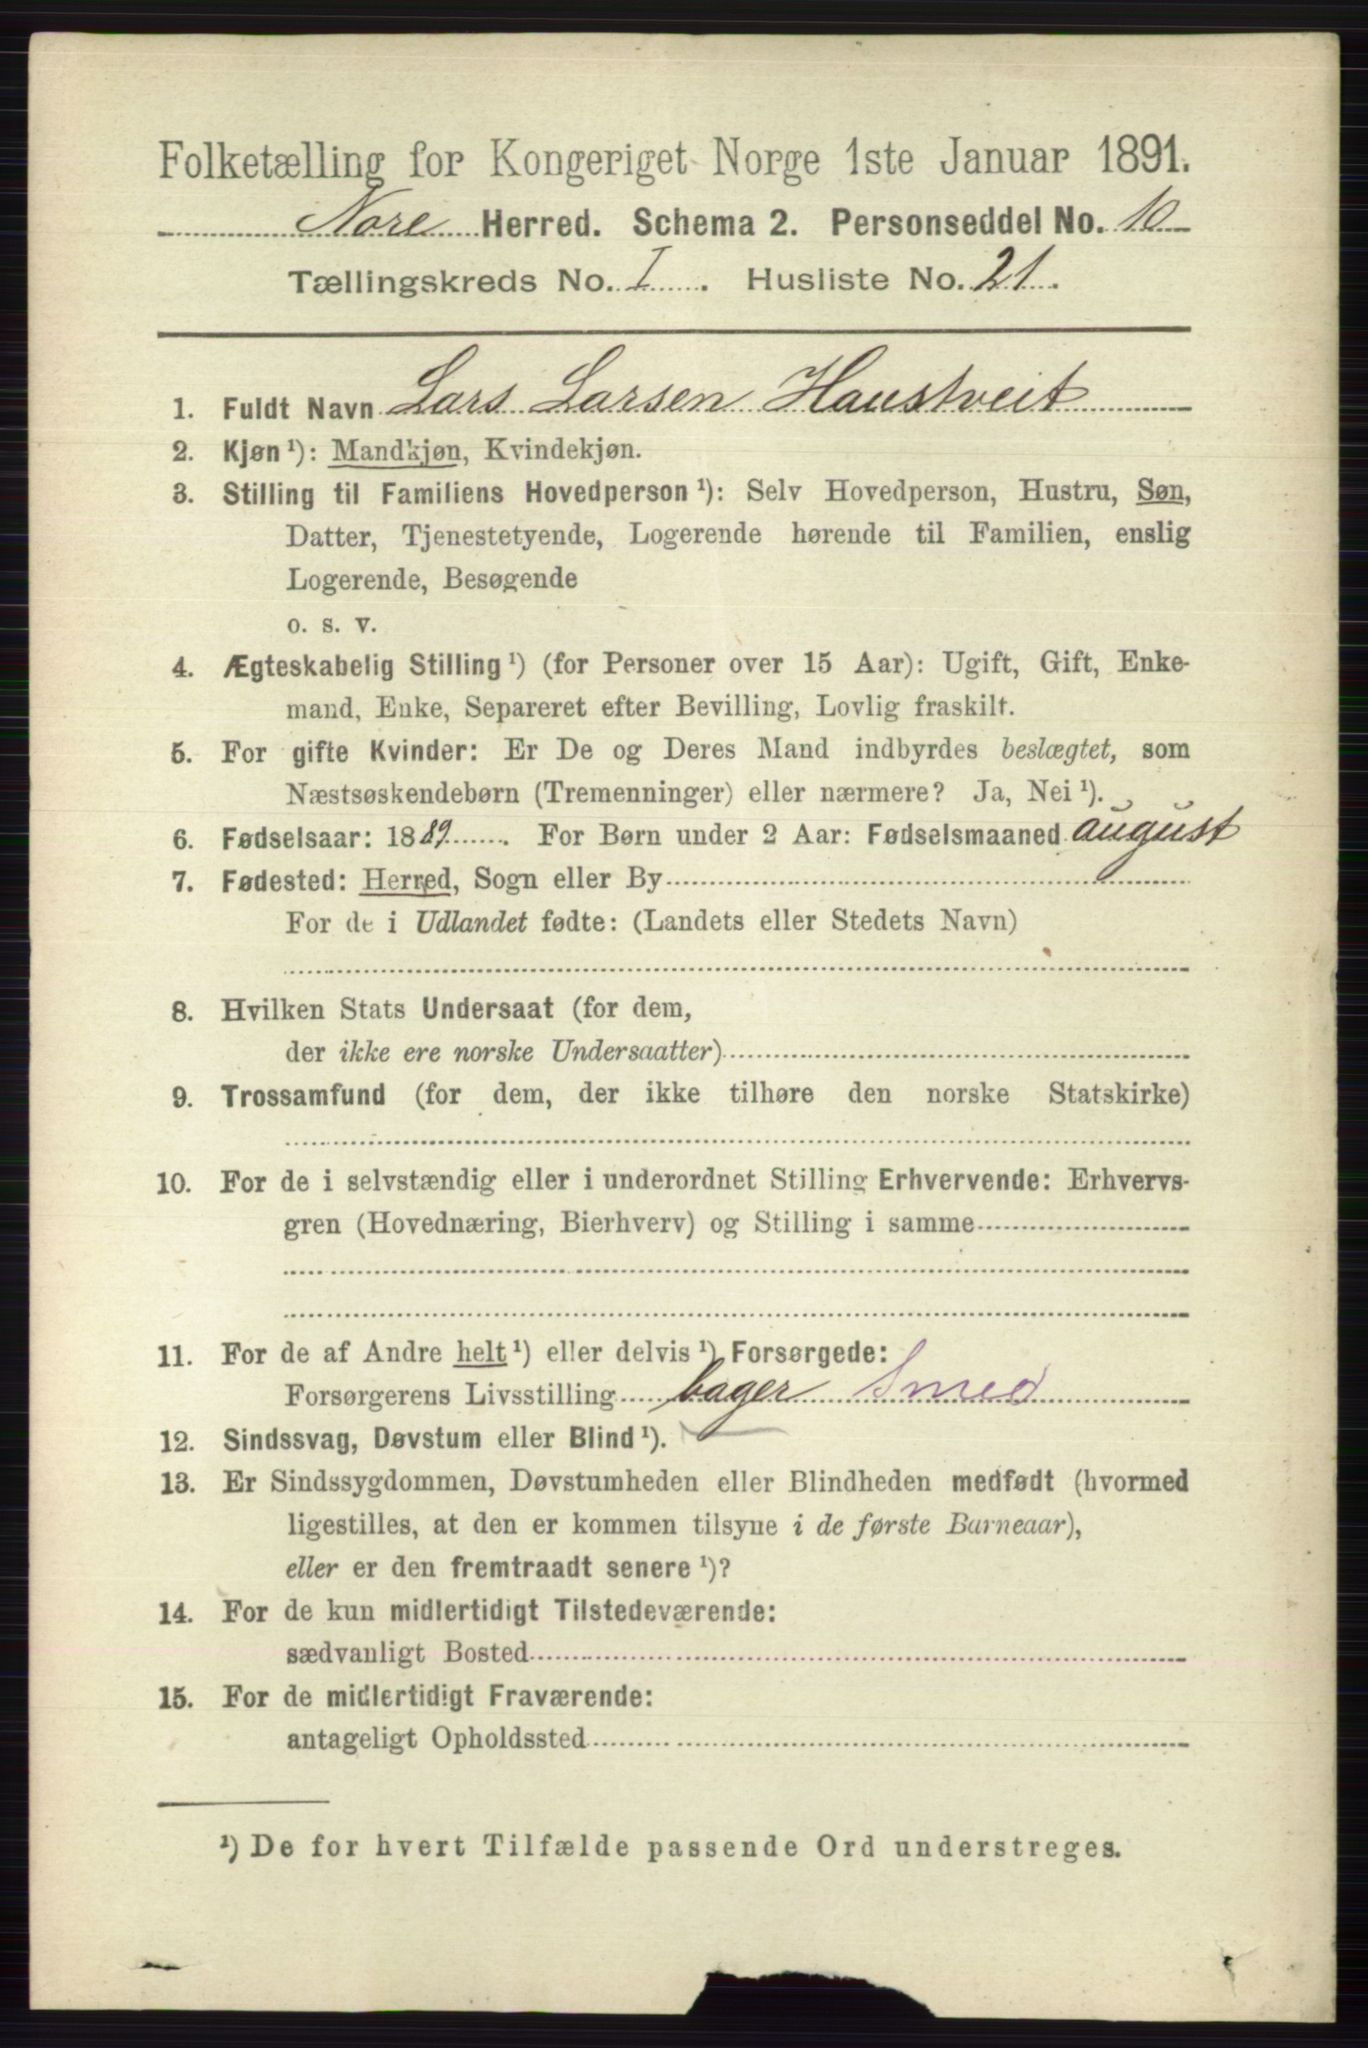 Folketælling for Kongeriget Norge 1ste Januar 1891.
Nore Herred. Schema 2. Personseddel No. 10
Tællingskreds No. I. Husliste No. 21.
1. Fuldt Navn Lars Larsen Haustveit
2. Kjøn ¹): Mandkjøn, Kvindekjøn.
3. Stilling til Familiens Hovedperson ¹): Selv Hovedperson, Hustru, Søn,
Datter, Tjenestetyende, Logerende hørende til Familien, enslig
Logerende, Besøgende
o. s. v.
4. Ægteskabelig Stilling ¹) (for Personer over 15 Aar): Ugift, Gift, Enke-
mand, Enke, Separeret efter Bevilling, Lovlig fraskilt.
5. For gifte Kvinder: Er De og Deres Mand indbyrdes beslægtet, som
Næstsøskendebørn (Tremenninger) eller nærmere? Ja, Nei ¹).
6. Fødselsaar: 1889. For Børn under 2 Aar: Fødselsmaaned august
7. Fødested: Herred, Sogn eller By
For de i Udlandet fødte: (Landets eller Stedets Navn)
8. Hvilken Stats Undersaat (for dem,
der ikke ere norske Undersaatter)
9. Trossamfund (for dem, der ikke tilhøre den norske Statskirke)
10. For de i selvstændig eller i underordnet Stilling Erhvervende: Erhvervs-
gren (Hovednæring, Bierhverv) og Stilling i samme
11. For de af Andre helt ¹) eller delvis ¹) Forsørgede:
Forsørgerens Livsstilling bager Smed
12. Sindssvag, Døvstum eller Blind ¹).
13. Er Sindssygdommen, Døvstumheden eller Blindheden medfødt (hvormed
ligestilles, at den er kommen tilsyne i de første Barneaar),
eller er den fremtraadt senere ¹)?
14. For de kun midlertidigt Tilstedeværende:
sædvanligt Bosted
15. For de midlertidigt Fraværende:
antageligt Opholdssted
¹) De for hvert Tilfælde passende Ord understreges.